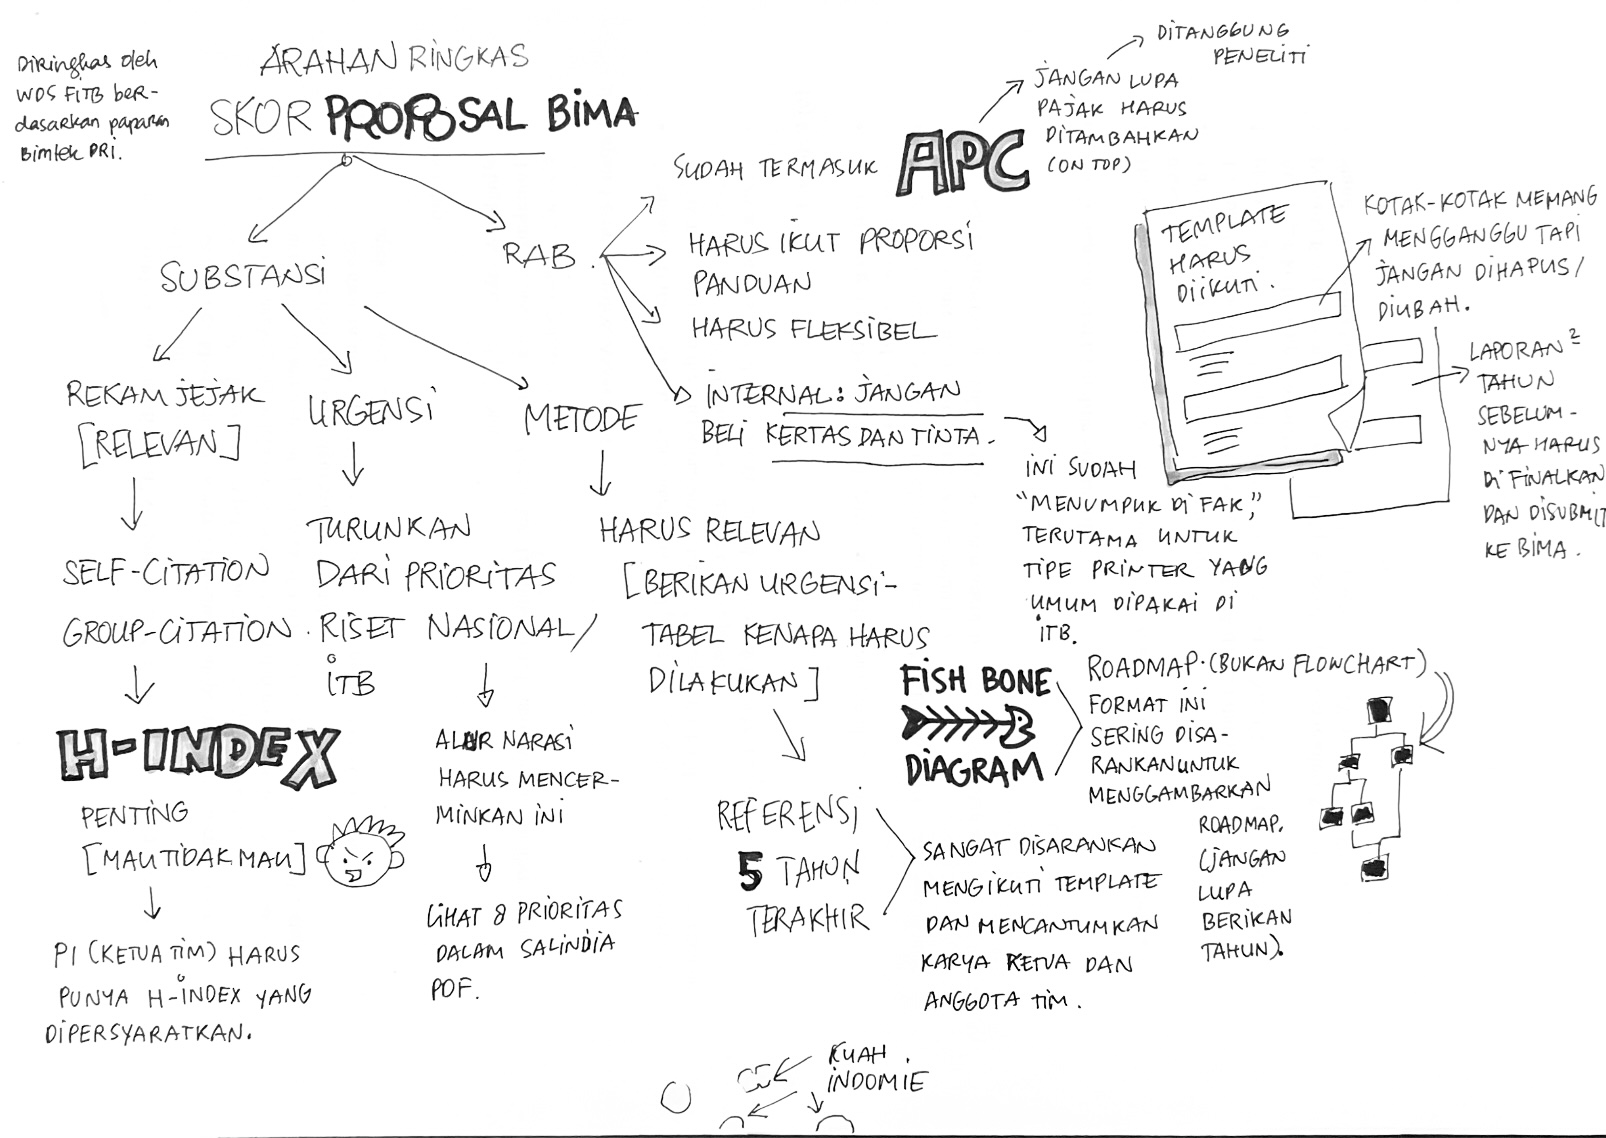 Diringkas oleh
WDS FITB ber-
dasarkan paparan
Bimtek DRI.
ARAHAN RINGKAS
SKOR PROPOSAL BIMA
SUBSTANSI
RAB.
SUDAH TERMASUK APC
JANGAN LUPA
PAJAK HARUS
DITAMBAHKAN
(ON TOP)
DITANGGUNG
PENELITI
HARUS IKUT PROPORSI
PANDUAN
HARUS FLEKSIBEL
INTERNAL: JANGAN
BELI KERTAS DAN TINTA.
INI SUDAH
"MENUMPUK DI FAK,"
TERUTAMA UNTUK
TIPE PRINTER YANG
UMUM DIPAKAI DI
ITB.
TEMPLATE
HARUS
DIIKUTI.
KOTAK-KOTAK MEMANG
MENGGANGGU TAPI
JANGAN DIHAPUS/
DIUBAH.
LAPORAN²
TAHUN
SEBELUM-
NYA HARUS
DIFINALKAN
DAN DISUBMIT
KE BIMA.
REKAM JEJAK
[RELEVAN]
SELF-CITATION
GROUP-CITATION.
H-INDEX
PENTING
[MAU TIDAK MAU]
PI (KETUA TIM) HARUS
PUNYA H-INDEX YANG
DIPERSYARATKAN.
URGENSI
TURUNKAN
DARI PRIORITAS
RISET NASIONAL/
ITB
ALUR NARASI
HARUS MENCER-
MINKAN INI
LIHAT 8 PRIORITAS
DALAM SALINDIA
PDF.
METODE
HARUS RELEVAN
[BERIKAN URGENSI-
TABEL KENAPA HARUS
DILAKUKAN]
REFERENSI
5 TAHUN
TERAKHIR
SANGAT DISARANKAN
MENGIKUTI TEMPLATE
DAN MENCANTUMKAN
KARYA KETUA DAN
ANGGOTA TIM.
FISH BONE
DIAGRAM
ROADMAP. (BUKAN FLOWCHART)
FORMAT INI
SERING DISA-
RANKAN UNTUK
MENGGAMBARKAN
ROADMAP.
(JANGAN
LUPA
BERIKAN
TAHUN).
KUAH
INDOMIE